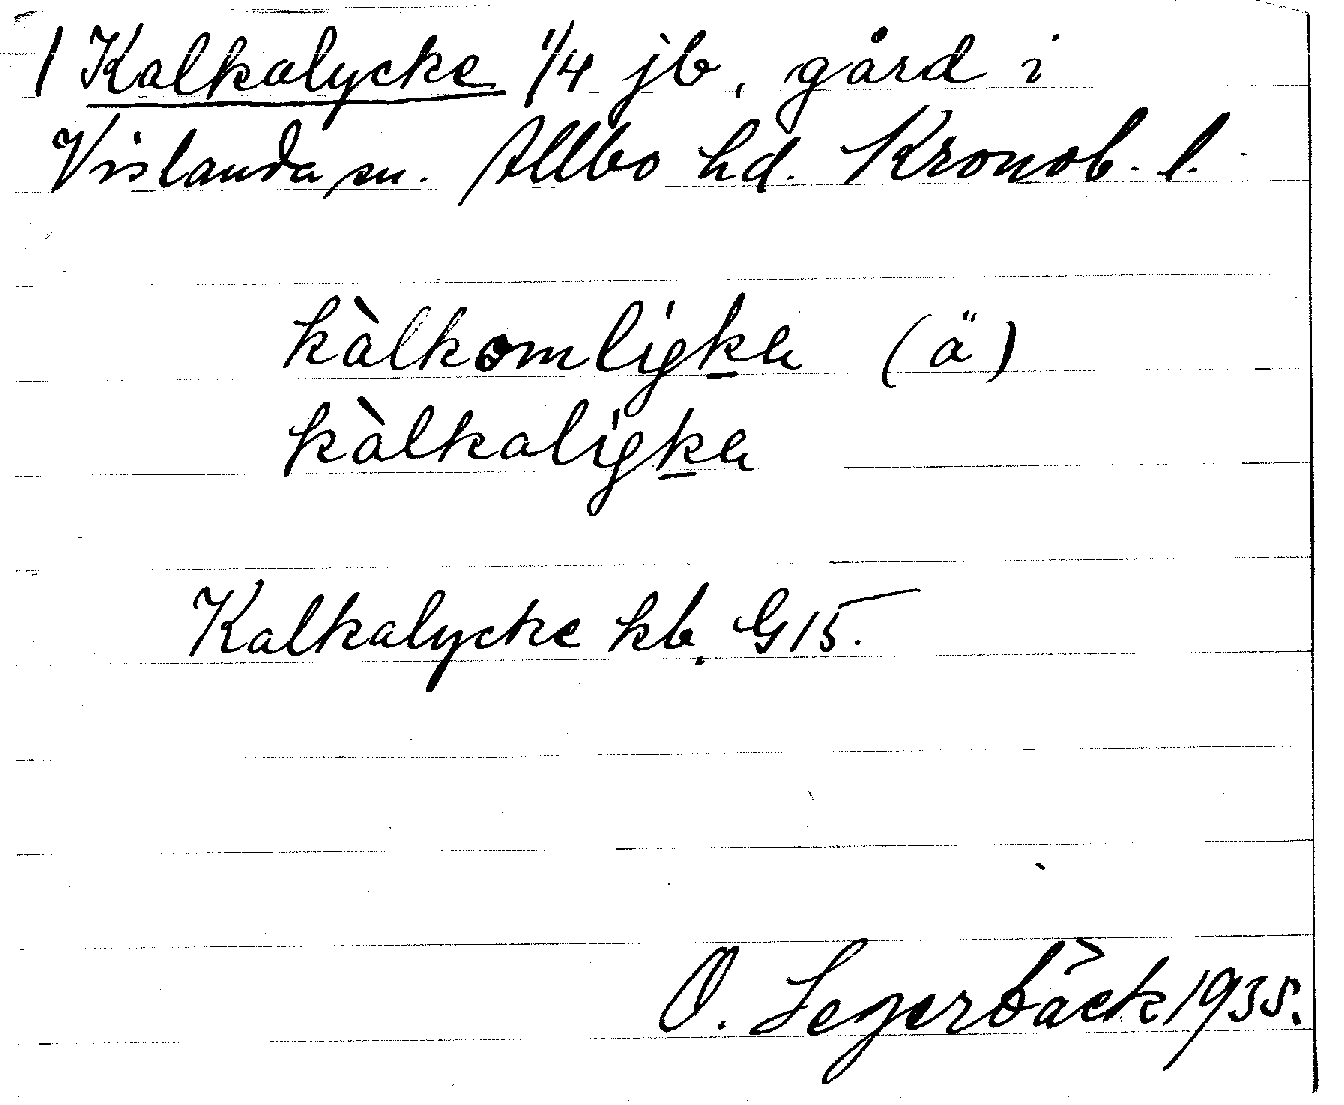 / Kalkalycke 1/4 jb, gård i
Vislanda sn. Allbo hd. Kronob. l.
kàlkomligka (ä)
kàlkaligka
Kalkalycke kb. G15.
O. Segerbäck 1935.